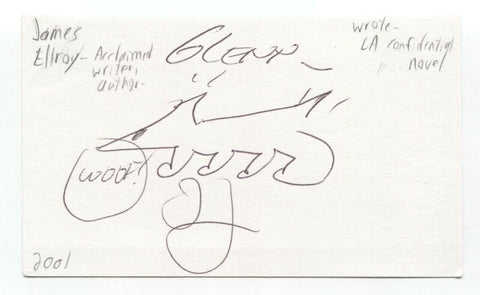 James
Ellroy- Acclaimed
writer,
author-
GLENN_
wrote-
LA confidential
novel
WOOF!
2001